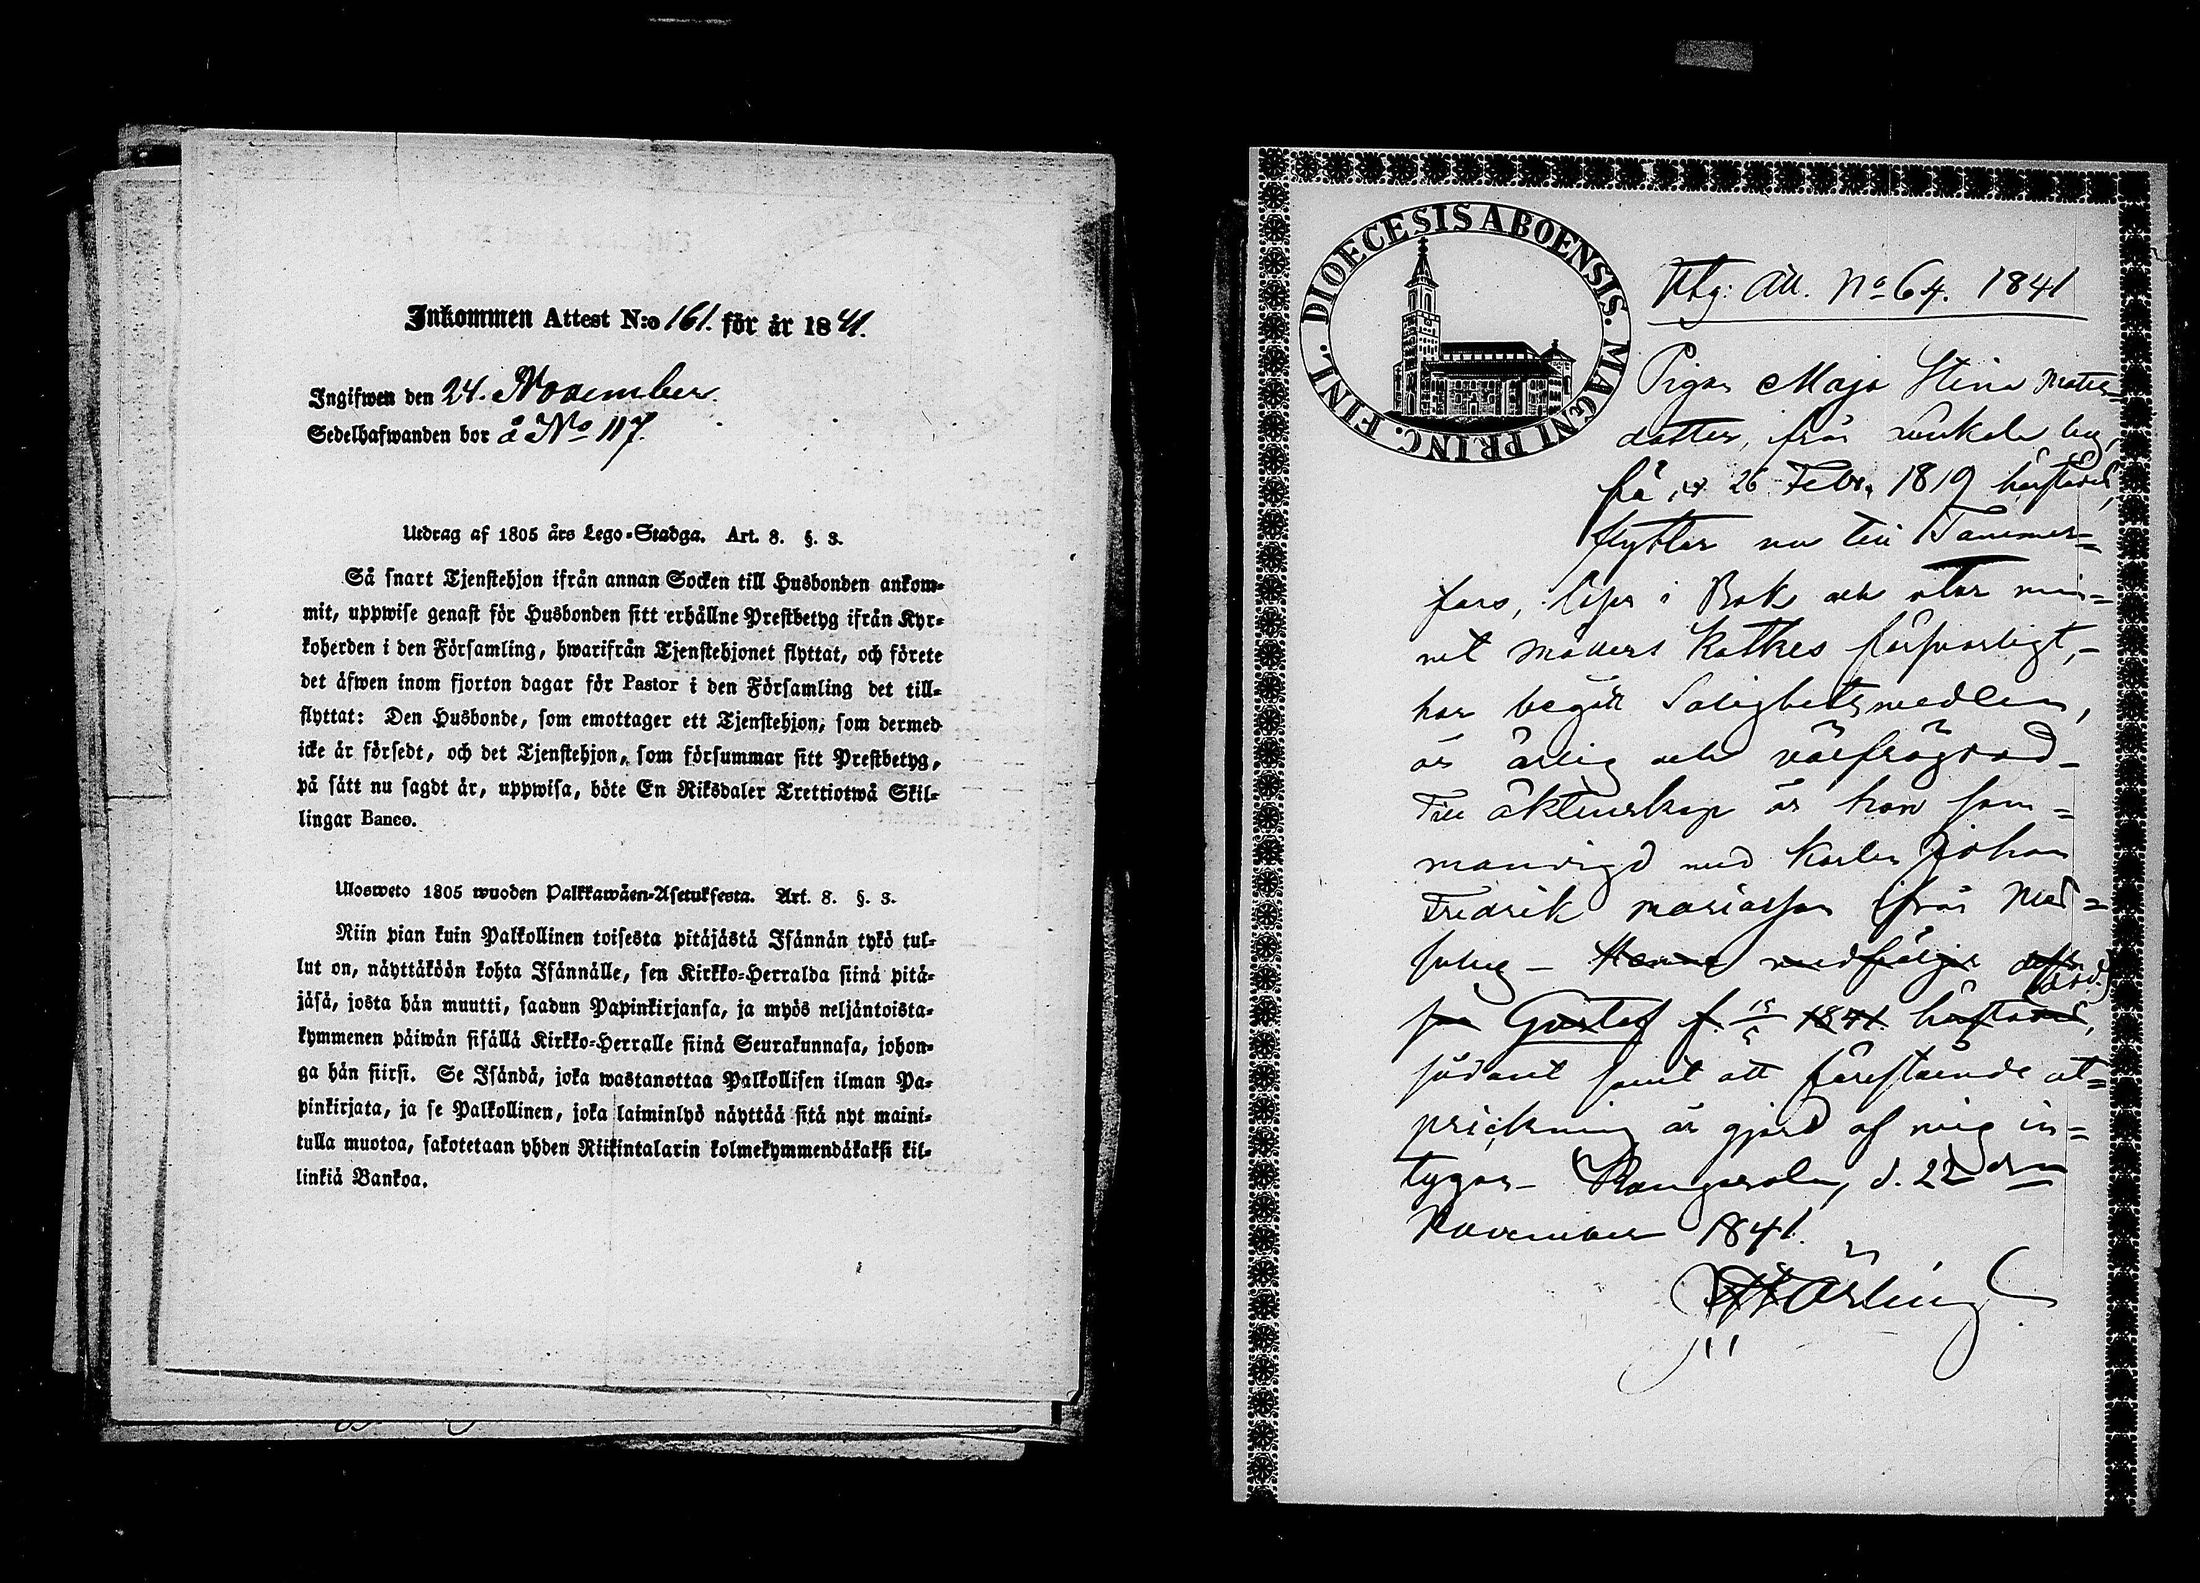 Inkommen Attest N:o 161. för år 1841.
Ingifwen den 24. November.
Sedelhafwanden bor å No 117.
Utdrag af 1805 års Lego-Stadga. Art. 8. §. 3.
Så snart Tjenstehjon ifrån annan Socken till Husbonden ankom-
mit, uppwise genast för Husbonden sitt erhållne Prestbetyg ifrån Kyr-
koherden i den Församling, hwarifrån Tjenstehjonet flyttat, och förete
det äfwen inom fjorton dagar för Pastor i den Församling det till-
flyttat: Den Husbonde, som emottager ett Tjenstehjon, som dermed
icke är försedt, och det Tjenstehjon, som försummar sitt Prestbetyg,
på sätt nu sagdt är, uppwisa, böte En Riksdaler Trettiotwå Skil-
lingar Banco.
Ulosweto 1805 wuoden Palkkawäen-Asetuksesta. Art. 8. §. 3.
Niin pian kuin Palkollinen toisesta pitäjästä Isännän tykö tul-
lut on, näyttäköön kohta Isännälle, sen Kirkko-Herralda siinä pitä-
jäsä, josta hän muutti, saadun Papinkirjansa, ja myös neljäntoista-
kymmenen päiwän sisällä Kirkko-Herralle siinä Seurakunnasa, johon-
ga hän siirsi. Se Isändä, joka wastanottaa Palkollisen ilman Pa-
pinkirjata, ja se Palkollinen, joka laiminlyö näyttää sitä nyt maini-
tulla muotoa, sakotetaan yhden Riikintalarin kolmekymmendäkaksi kil-
linkiä Bankoa.
DIOECESIS ABOENSIS. MAGNI PRINC. FINL.
Utg: Att. No 64. 1841
Pigan Maja Stina Mats-
dotter, från by,
26 Febr. 1819 härstädes,
flyttar nu till Tammer-
fors, läser i Bok och utan min-
net Möllers Katkes försvarligt,
har begått Salighetsmedlen,
är ärlig och välfrägdad_
Till äktenskap är hon sam-
manvigd med Karlen Johan
Fredrik ifrån
Henne medföljer
son Gustaf f. 15/5 1841 härstädes,
sådant samt att förestående ut-
prickning är gjord af mig in-
tygar_ Kangasala, d. 22dra
November 1841.